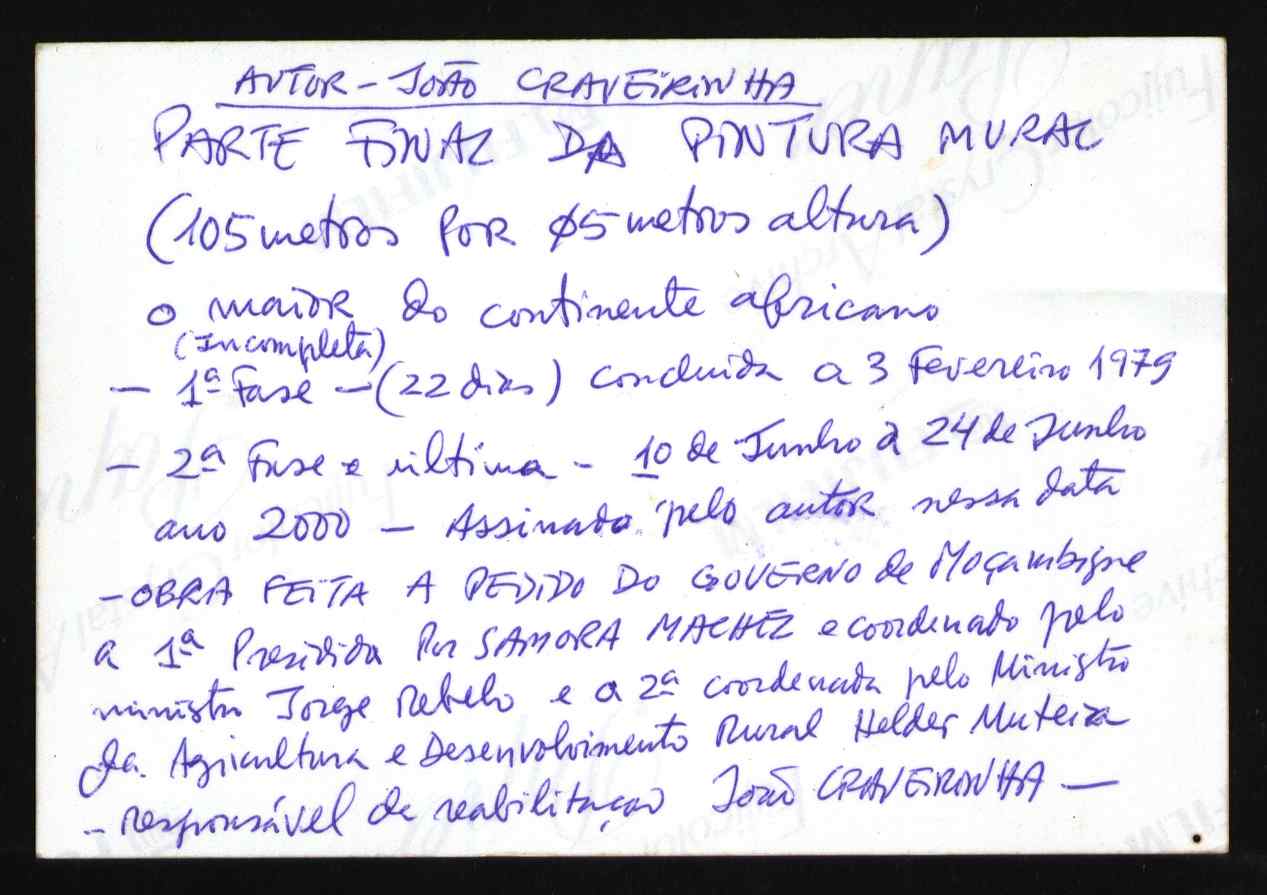 AUTOR - JOÃO CRAVEIRINHA
PARTE FINAL DA PINTURA MURAL
(105 metros por 05 metros altura)
o maior do continente africano
(Incompleta)
- 1ª Fase - (22 dias) concluida a 3 Fevereiro 1979
- 2ª Fase e última - 10 de Junho à 24 de Junho
ano 2000 - Assinado pelo autor nessa data
- OBRA FEITA A PEDIDO DO GOVERNO de Moçambique
a 1ª Presidida Por SAMORA MACHEL e coordenado pelo
ministro Jorge Rebelo e a 2ª coordenada pelo Ministro
da Agricultura e Desenvolvimento Rural Helder Muteia
- responsável de reabilitação João CRAVEIRINHA -
Fujicolor
Crystal Archive
Paper
FUJIFILM